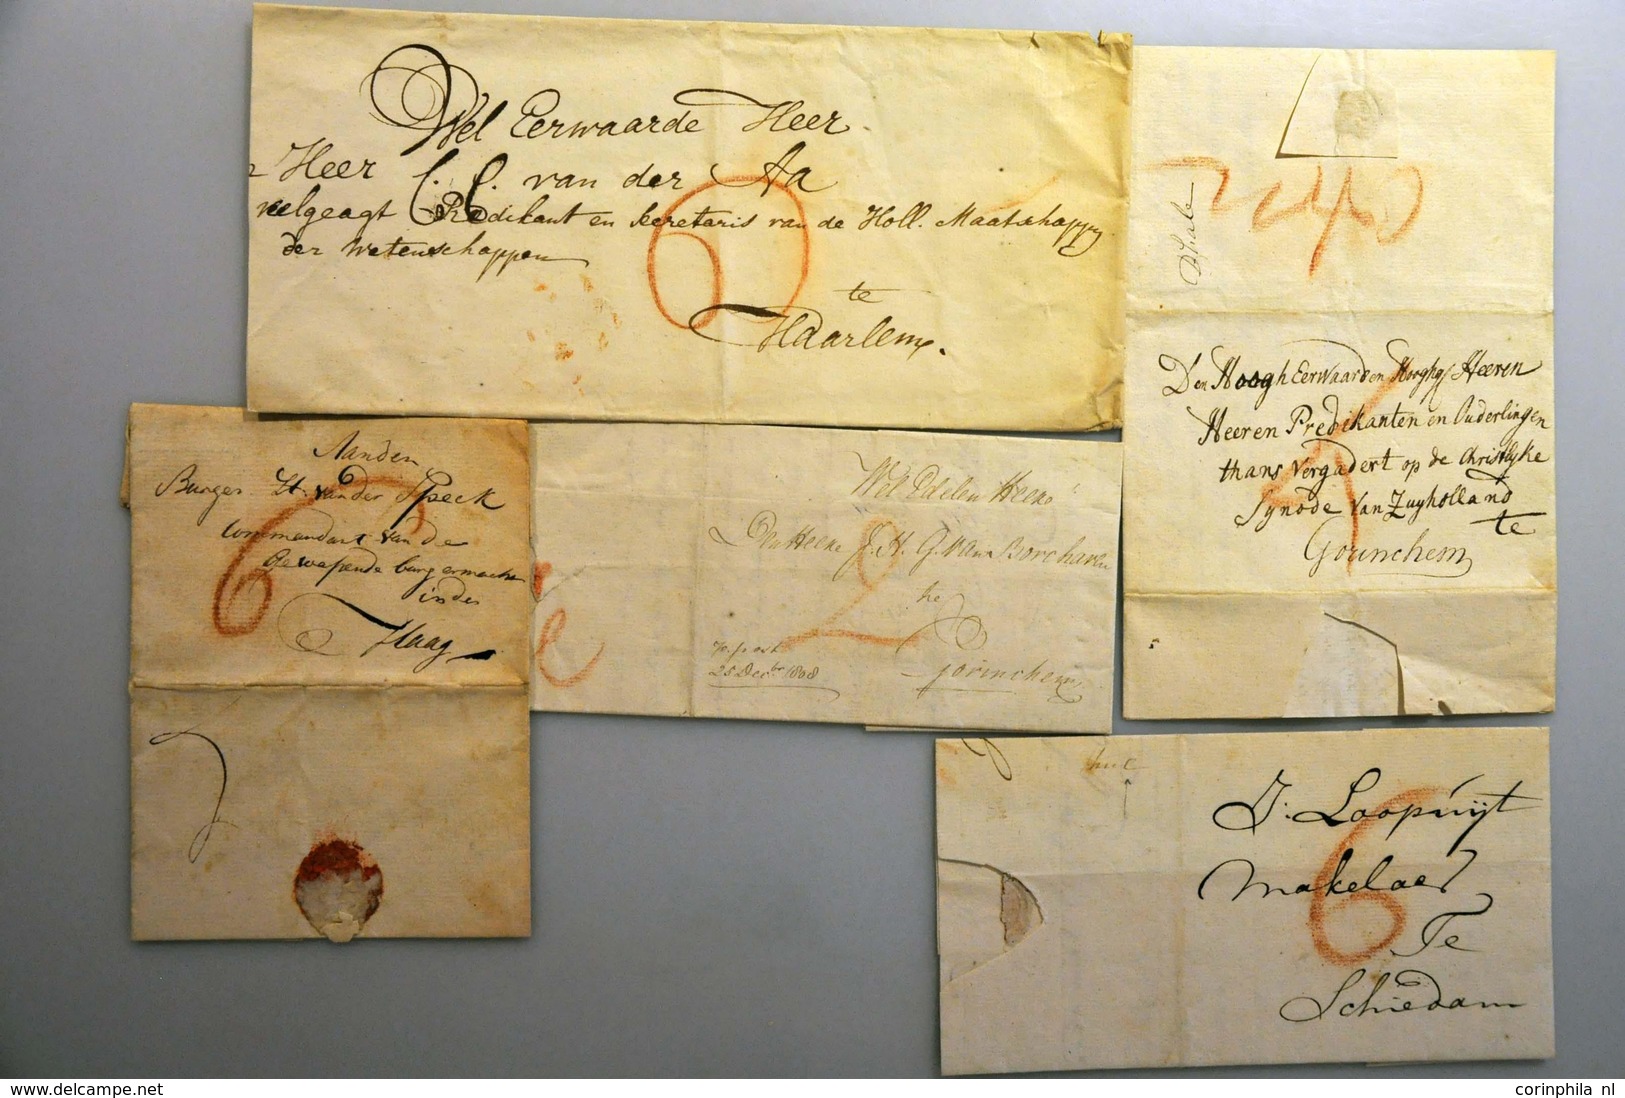 Wel Eerwaarde Heer
Heer C. C. van der Aa
veelgeagt Predikant en Secretaris van de Holl. Maatschappy
der Wetenschappen
te
Haarlem.
6
Den Hoogh Eerwaarden Hooghg Heeren
Heeren Predikanten en Ouderlingen
thans vergadert op de Christlyke
Synode van Zuyholland
te
Gorinchem
Aan den
6
Burger Lt. van der Speck
Commandant van de
Gewapende burgermacht
in den
Haag
6
Wel Edelen Heere
Den Heere J. H. G. van Borcharen
te
Gorinchem
2
25 Decbr 1808
J. Loopuijt
Makelaer
Te
Schiedam
6
www.delcampe.net
corinphila nl